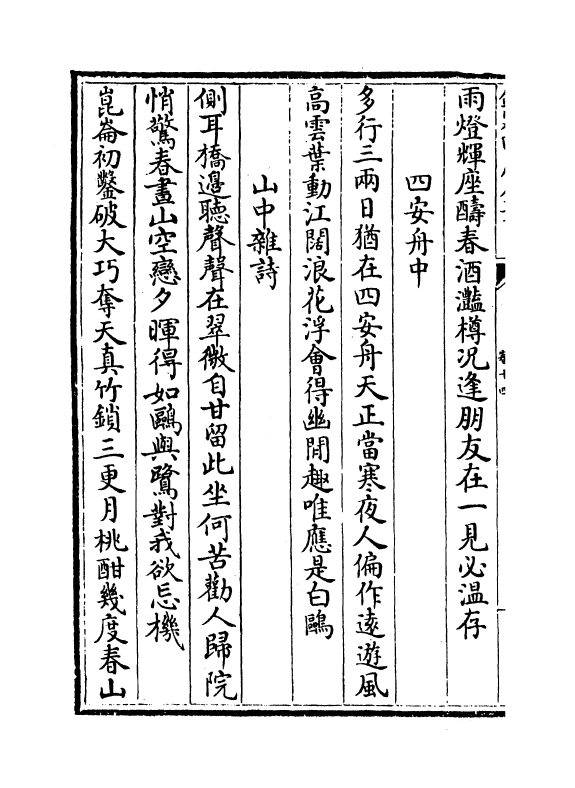 雨燈輝座醻春酒灩樽况逢朋友在一見必温存
四安舟中
多行三兩日猶在四安舟天正當寒夜人偏作逺遊風
高雲葉動江闊浪花浮會得幽閒趣唯應是白鷗
山中雜詩
側耳橋邉聽聲聲在翠微自甘留此坐何苦勸人歸院
悄驚春晝山空戀夕暉得如鷗與鷺對我欲忘機
崑崙初鑿破大巧奪天真竹鎖三更月桃酣幾度春山